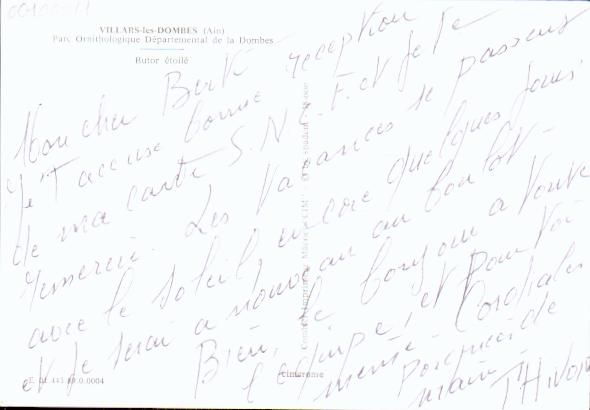 VILLARS-les-DOMBES (Ain)
Parc Ornithologique Départemental de la Dombes
Butor étoilé
Mon cher Bert
Je T'accuse bonne réception
de ma carte S.N.T. et je te
remercie. Les Vacances se passent
avec le soleil, encore quelques jours
et je serai à nouveau au boulot -
Bien, le bonjour à toute
l'équipe, et pour toi
Cordiales
poignée de
main -
cimarome